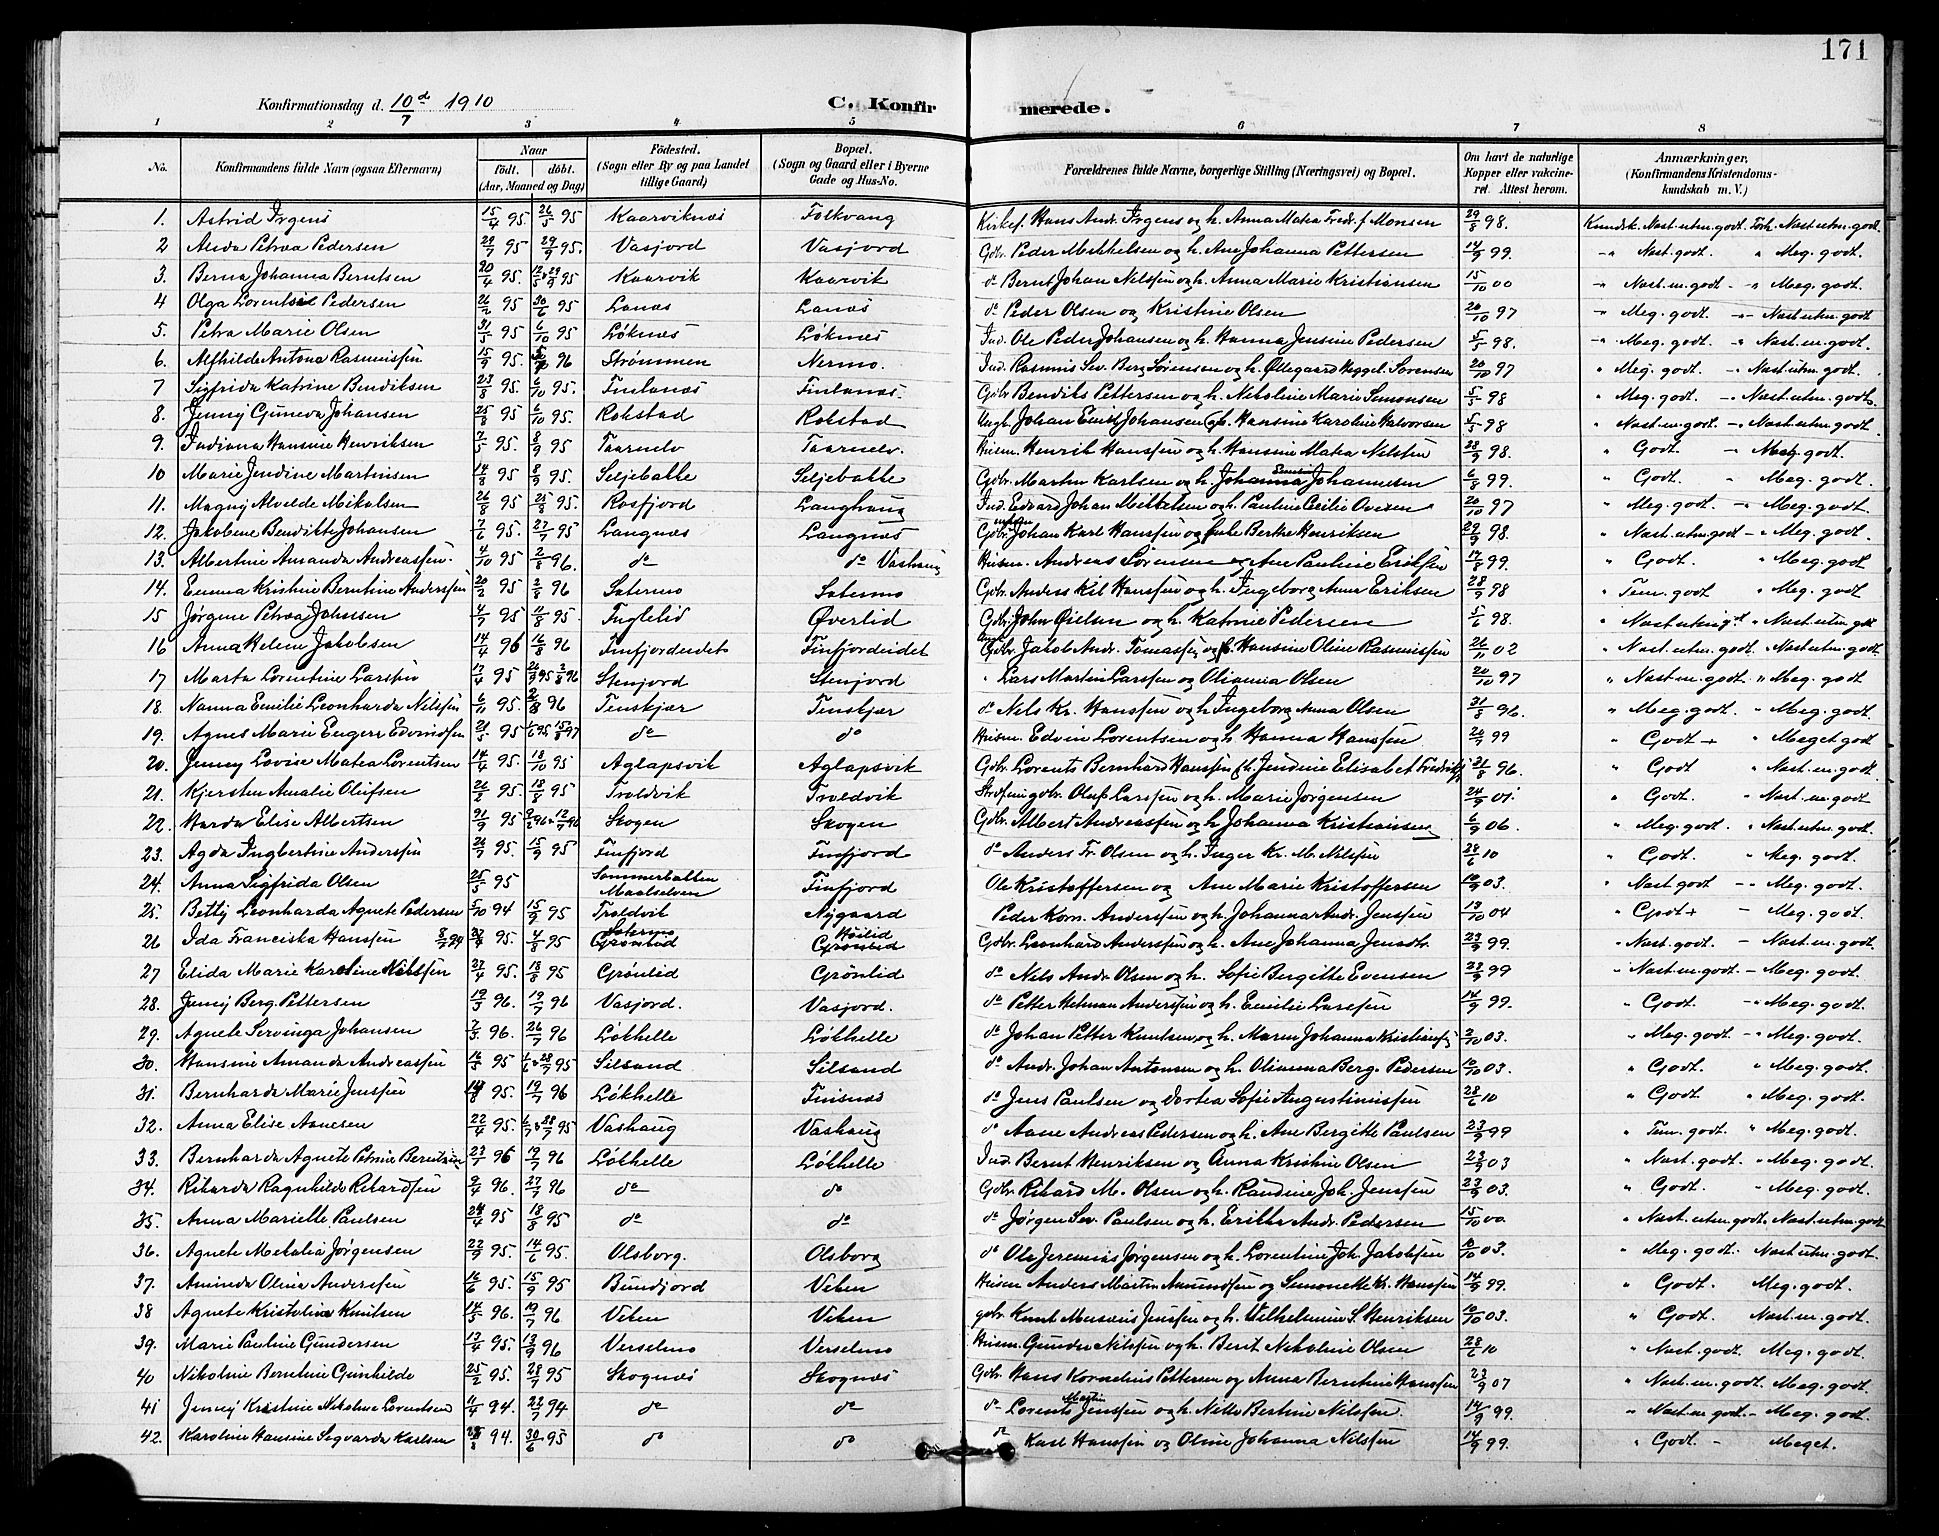 171
Konfirmationsdag d. 10d/7 1910 C. Konfir merede.
1 2 3 4 5 6 7 8
No. Konfirmandens fulde Navn (ogsaa Efternavn) Naar födt. döbt. (Aar, Maaned og Dag) Födested. (Sogn eller By og paa Landet tillige Gaard) Bopæl. (Sogn og Gaard eller i Byerne Gade og Hus-No. Forældrenes fulde Navne, borgerlige Stilling (Næringsvei) og Bopæl. Om havt de naturlige Kopper eller vakcineret. Attest herom. Anmærkninger, (Konfirmandens Kristendomskundskab m. V.)
1. Astrid Irgens 15/4 95 26/5 95 Kaarviknæs Folkvang Kirkes. Hans Andr. Irgens og h. Anna Matea Fredr. f. Monsen 29/8 98. Kundsk. Nost. utm. godt. Forh. Nost. utm. godt.
2 Alida Petrea Pedersen 20/7 95 29/9 95. Vasjord Vasjord Gdbr. Peder Mikkelsen og h. Ane Johanna Pettersen 14/9 99. " Nost. godt. " Meg. godt.
3. Berna Johanna Berntsen 20/4 95. 12/5 & 29/9 95 Kaarvik Kaarvik do Bernt Johan Nilssen og h. Anna Marie Kristiansen 15/10 00 " Nost. m. godt. " Meg. godt.
4 Olga Lorentse Pedersen 26/2 95 30/6 95 Lanæs Lanæs do Peder Olsen og Kristine Olsen 20/10 97 " Meg. godt. " Nost. utm. godt.
5. Petra Marie Olsen 31/5 95 6/10 95 Løknæs Løknæs Ind. Ole Peder Johansen og h. Hanna Jensine Pedersen 5/5 98. " Meg. godt. " Nost. m. godt.
6. Alfhilde Antona Rasmussen 15/9 95. 96 Strømmen Nermo. Ind. Rasmus Sev. Berg Sörensen og h. Ollegaard Sorensen 20/10 97 " Meg. godt. " Nost. utm. godt.
7 Sigfrida Katrine Bendiksen 23/8 95. 6/10 95. Finlanæs Finlanæs. Gdbr. Bendiks Pettersen og h. Nikoline Marie Simonsen 5/5 98 " Meg. godt. " Nost. utm. godt.
8. Jenny Guneva Johansen 25/8 95 6/10 95. Rokstad Rokstad Ungk. Johan Emil Johansen og Hansine Karoline Halvorsen 5/5 98 " Nost. m. godt. " Nost. utm. godt.
9. Indiana Hansine Henriksen 7/5 95. 8/9 95 Taarnelv Taarnelv. Husm. Henrik Hanssen og h. Hansine Matea Nilssen 28/9 98. " Godt. " Meg. godt.
10 Marie Jendine Martinsen 14/8 95 8/9 95. Seljebakke Seljebakke Gdbr. Martin Karlsen og h. Johanna Johannesen 6/8 99. " Godt. " Meg. godt.
11. Magny Alvilde Mikalsen 26/8 95 25/8 95. Rosfjord Langhaug Ind. Edvard Johan Mikkelsen og h. Pauline Cecilie Ovesen 20/10 97 " Meg. godt. " Meg. godt.
12. Jakobine Bendikte Johansen 7/6 95. 27/7 95 Langnæs Langnæs Gdbr. Johan Karl Hanssen og Berthe Henriksen 29/9 98. " Nost. utm. godt " Meg. godt.
13. Albertine Amanda Andreassen. 4/10 95 2/8 96. do do Vashaug Husm. Andreas Sörensen og Ane Pauline Eriksen 17/8 99. " Godt. " Meg. godt
14. Emma Kristine Berntine Anderssen 20/2 95 2/8 96 Satermo Satermo Gdbr. Anders Kil Hanssen og h. Ingeborg Anna Eriksen 28/9 98 " Tem. godt. " Meg. godt
15 Jørgine Petrea Johnsen 4/7 95 11/8 95. Inglelid Øverlid Gdbr. John Øielsen og h. Katrine Pedersen 5/6 98. " Nost. utm. godt " Nost. utm. godt
16 Anna Helene Jakobsen 14/4 96 16/8 96 Finfjordeidet Finfjordeidet Gdbr. Jakob Andr. Tomassen og h. Hansine Oline Rasmussen 26/11 02 " Nost. utm. godt. " Nost. utm. godt.
17 Marta Lorentine Larssen 17/4 95 95 2/8 96 Stenjord Stenjord " Lars Martin Larssen og Olianna Olsen 20/10 97 " Nost. m. godt. " Meg. godt.
18. Nanna Emilie Leonharda Nilssen 6/11 95. 2/8 96 Finskjær Finskjær do Nels Kr. Hanssen og h. Ingeborg Anna Olsen 31/8 96. " Meg. godt. " Meg. godt.
19. Agnes Marie Eugere Edvindsen 21/5 95 1/6 95 15/8 97 do do Husm. Edvin Lorentsen og h. Hanna Hanssen 20/7 99 " Godt + " Meget godt
20. Jenny Lovise Matea Lorentsen 14/4 95. 18/10 95 Aglapsvik Aglapsvik Gdbr. Lorents Bernhard Hanssen & h. Jendine Elisabet Fredriks 31/8 96. " Godt " Nost. m. godt.
21. Kjersten Amalie Olufsen 26/2 95. 18/8 95 Troldvik Troldvik gdbr. Oluf Larssen og h. Marie Jørgensen 24/9 01. " Godt. " Nost. m. godt
22. Harda Elise Albertsen 21/9 95 96 & 12/7 96 Skogen Skogen Gdbr. Albert Andreassen og h. Johanna Kristiansen 6/9 06. " Meg. godt. " Nost. utm. godt.
23. Agda Ingbertine Anderssen 26/7 95. 15/9 95 Finfjord Finfjord do Anders Fr. Olsen og h. Inger Kr. M. Nilssen 28/6 10 " Godt. " Meg. godt.
24. Anna Sigfrida Olsen 25/5 95 Sommerbakken Maalselven Finfjord Ole Kristoffersen og Ane Marie Kristoffersen 10/9 03. " Nost. godt " Meg. godt.
25. Betty Leonharda Agnete Pedersen 5/10 94 15/9 95 Troldvik Nygaard Peder Korn. Anderssen og h. Johanna Andr. Jenssen 13/10 04 " Godt + Meg. godt.
26 Ida Franciska Hanssen 8/7 94 22/4 95. 4/8 95 Satermo Grønlid Høilid Grønlid Gdbr. Leonhard Anderssen og h. Ane Johanna Jensdtr. 23/9 99. " Nost. godt. Nost. m. godt.
27 Elida Marie Karoline Nilssen 22/4 95. 18/8 95 Grönlid Grönlid do Nels Andr. Olsen og h. Sofie Bergitte Evensen 23/9 99 " Nost. m. godt. Meg. godt.
28. Jenny Berg. Pettersen 19/3 96. 19/7 96 Vasjord. Vasjord. do Petter Helman Anderssen og h. Emilie Larssen 14/9 99. " Godt. " Meg. godt.
29. Agnete Servinga Johansen 2/3 96. 26/7 96 Løkhelle Løkhelle do Johan Petter Knutsen og h. Maren Johanna Kristians 2/10 03. " Meg. godt. " Meg. godt.
30. Hansine Amanda Andreassen 16/5 95 1/6 & 28/7 95 Silsand Silsand do Andr. Johan Antonsen og h. Olianna Berg. Pedersen 10/10 03. " Godt. " Meg. godt.
31. Bernharda Marie Jenssen 95. 19/7 96 Løkhelle Finsnæs do Jens Paulsen og Dortea Sofie Augustinussen 28/6 10 " Godt. " Meg. godt.
32. Anna Elise Aanesen 22/4 95. 1/7 & 28/7 95 Vashaug Vashaug do Aane Andreas Pedersen og h. Ane Bergitte Paulsen 23/9 99 " Tem. godt. " Meg. godt.
33. Bernharda Agnete Petrine Berntsen 23/1 96 19/7 96 Løkhelle Løkhelle Ind. Bernt Henriksen og Anna Kristine Olsen 23/9 03 " Nost. godt. " Meg. godt.
34. Rikarda Ragnhilde Rikardsen 9/4 96. 27/7 96 do do Gdbr. Rikard M. Olsen og h. Randine Joh. Jenssen 23/9 03. " Godt. " Meg. godt.
35. Anna Marielle Paulsen 24/4 95 18/8 95 do do do Jørgen Sev. Paulsen og h. Erikke Andr. Pedersen 15/10 00 " Nost. utm. godt. Nost. utm. godt
36. Agnete Mekalia Jørgensen 22/9 95. 14/6 95. Olsborg. Olsborg do Ole Jeremias Jørgensen og h. Lorentine Joh. Jakobsen 10/10 03. " Meg. godt. Nost. utm. godt.
37. Aminda Oline Anderssen 16/6 95. 15/9 95 Bundjord Veken Husm Anders Martin Amundsen og Simonette Kr. Hanssen 14/9 99. " Godt. Meg. godt.
38 Agnete Kristoline Knutsen 14/5 96. 19/7 96 Veken Veken gdbr. Knut Mesæus Jenssen og h. Vilhelmine S. Henriksen 10/10 03. " Godt. Nost. m. godt.
39. Marie Pauline Gundersen 17/4 95. 13/9 96 Verselmo Verselmo Husm. Gunder Nilssen og h. Beret Nikoline Olsen 28/6 10 " Nost. godt. Meg. godt.
40 Nikoline Berntine Gunhilde 25/2 95. 28/7 95 Skognæs Skognæs Gdbr. Hans Kornelius Pettersen og Anna Berntine Hanssen 23/9 07 " Nost. m. godt. Meg. godt.
41 Jenny Kristine Nikoline Lorentsen 11/4 94. 22/7 94 do do do Lorents Martin Jenssen og h. Nelle Bertine Nilssen. 14/9 99. " Nost. m. godt. Meg. godt.
42. Karoline Hansine Segvarda Karlsen 94. 30/6 95 do do do Karl Hanssen og Oline Johanna Nilssen 14/9 99. " Godt. Meget.